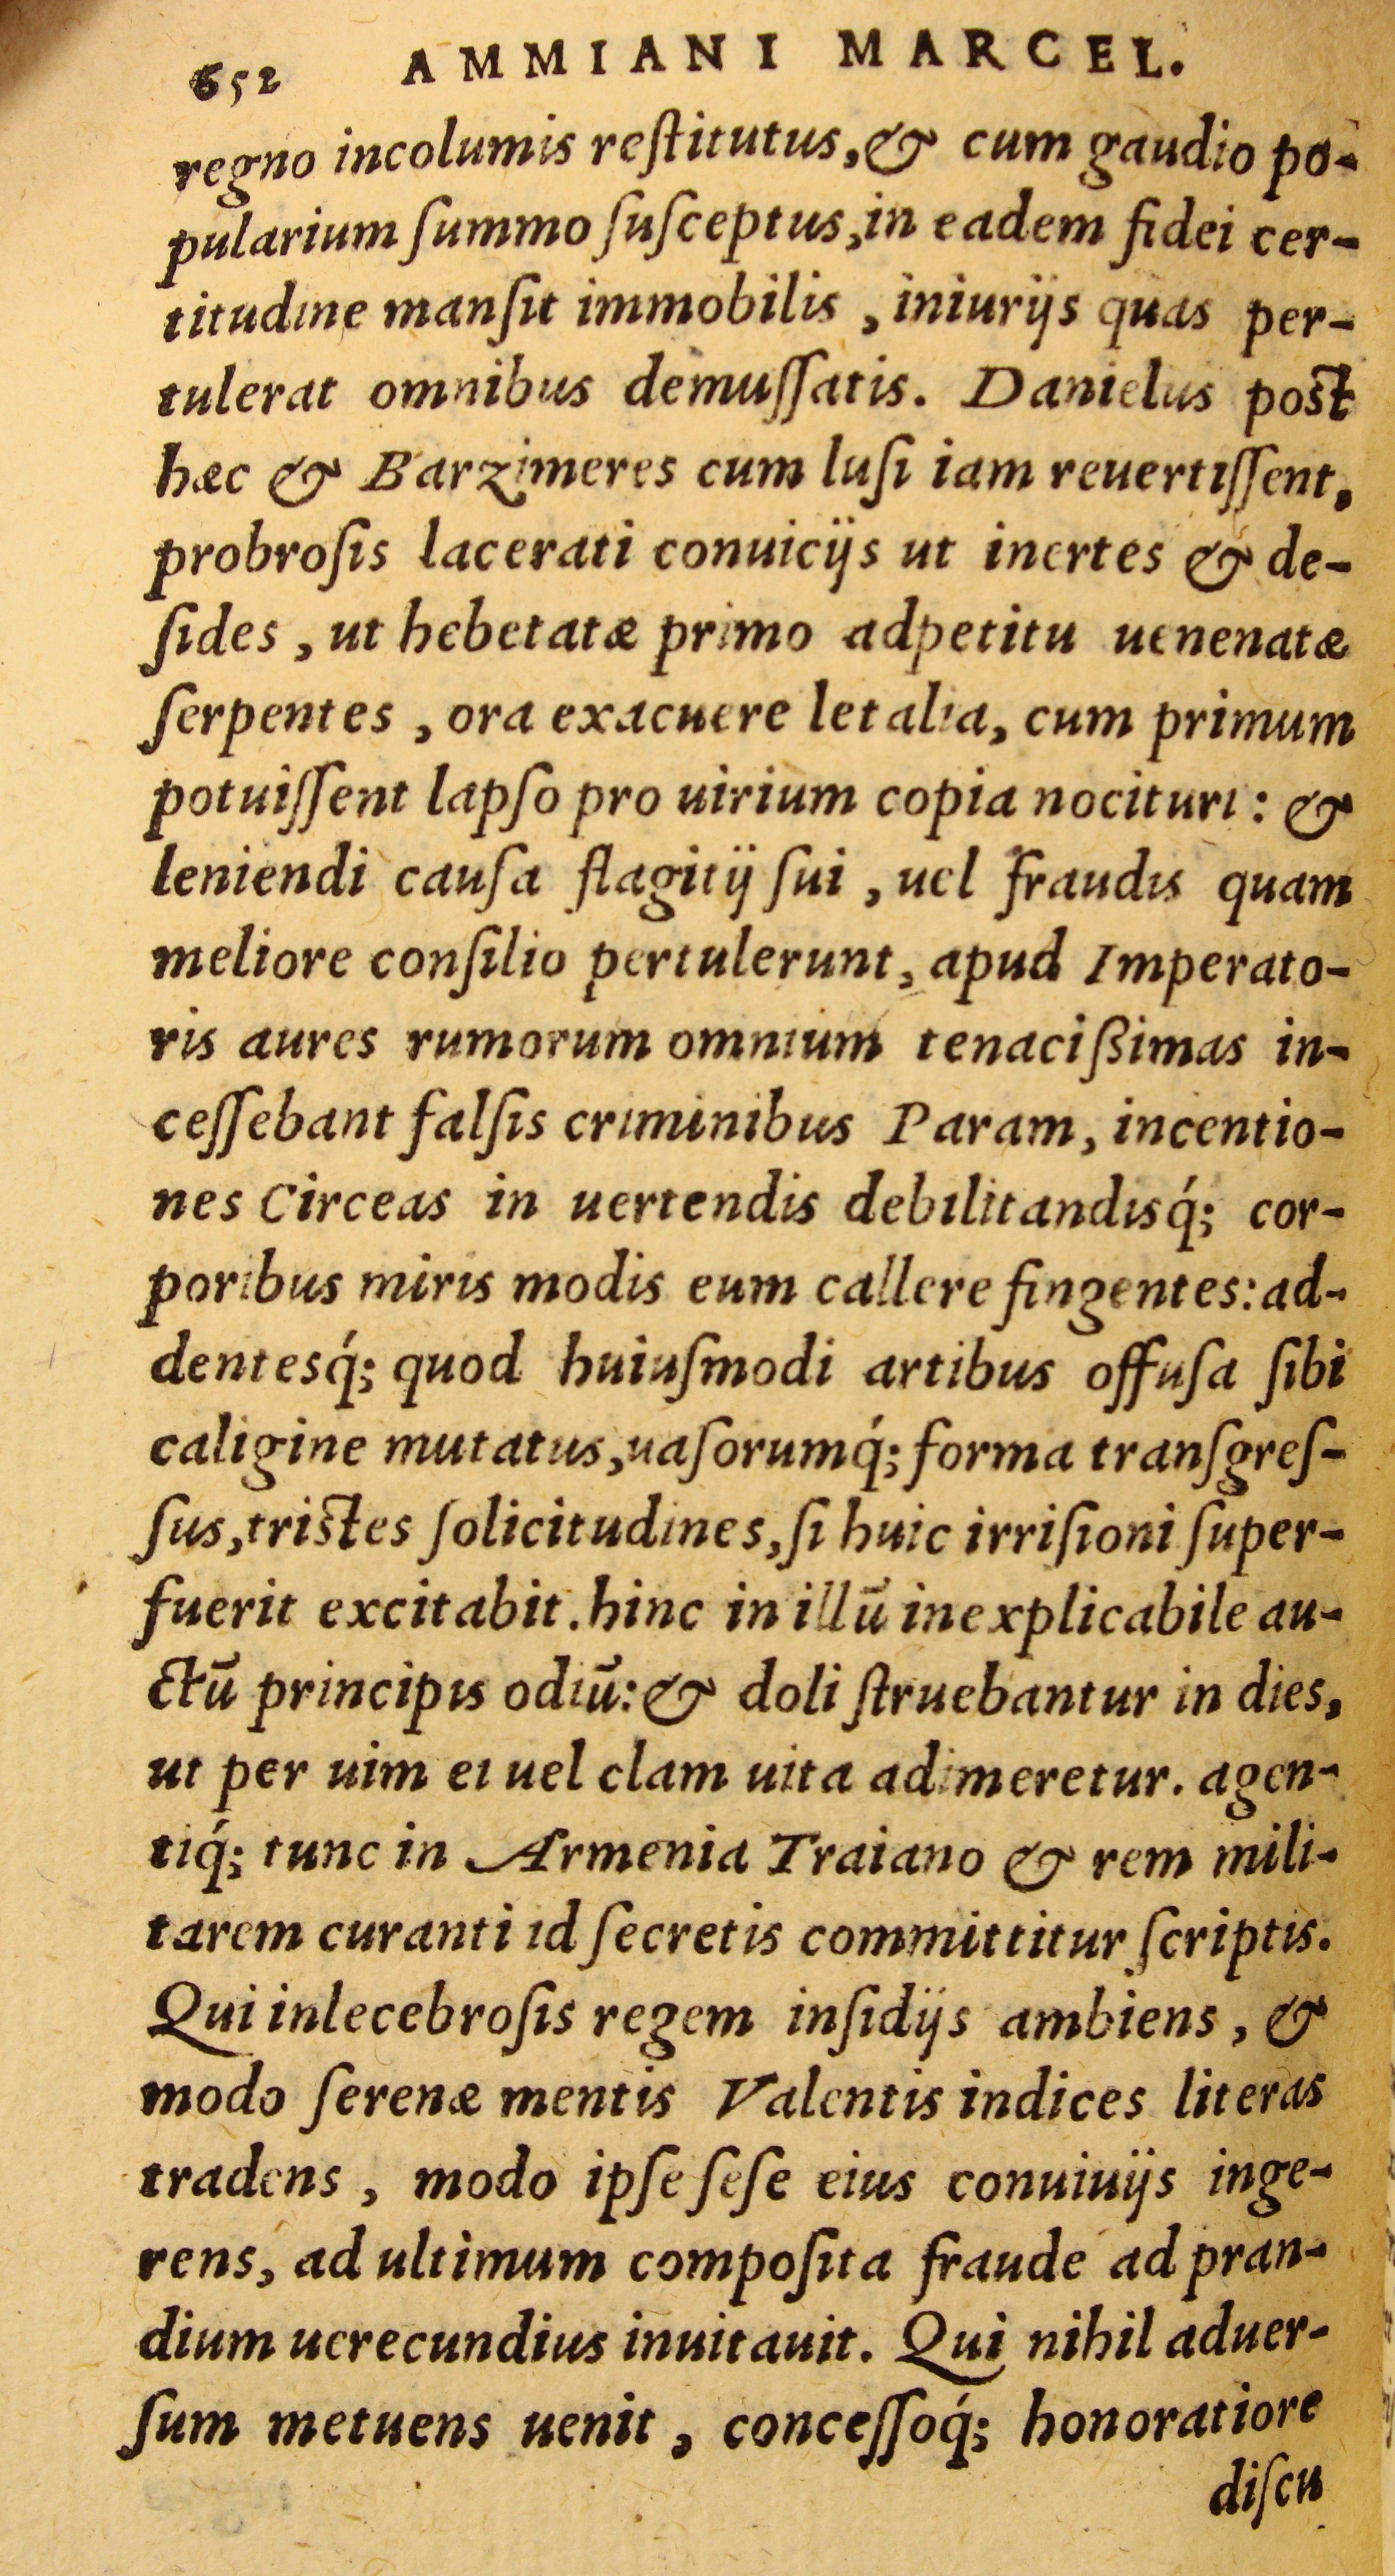 652 AMMIANI MARCEL.
regno incolumis reſtitutus, & cum gaudio po-
pularium ſummo ſuſceptus, in eadem fidei cer-
titudine manſit immobilis, iniurijs quas per-
tulerat omnibus demuſſatis. Danielus poſt
hæc & Barzimeres cum luſi iam reuertiſſent,
probroſis lacerati conuicijs ut inertes & de-
ſides, ut hebetatæ primo adpetitu uenenatæ
ſerpentes, ora exacuere letalia, cum primum
potuiſſent lapſo pro uirium copia nocituri: &
leniendi cauſa flagitij ſui, uel fraudis quam
meliore conſilio pertulerunt, apud Imperato-
ris aures rumorum omnium tenacißimas in-
ceſſebant falſis criminibus Param, incentio-
nes Circeas in uertendis debilitandisq́; cor-
poribus miris modis eum callere fingentes: ad-
dentesq́; quod huiuſmodi artibus offuſa ſibi
caligine mutatus, uaſorumq́; forma tranſgreſ-
ſus, triſtes ſolicitudines, ſi huic irriſioni ſuper-
fuerit excitabit. hinc in illū inexplicabile au-
ctū principis odiū: & doli ſtruebantur in dies,
ut per uim ei uel clam uita adimeretur. agen-
tiq́; tunc in Armenia Traiano & rem mili-
tarem curanti id ſecretis committitur ſcriptis.
Qui inlecebroſis regem inſidijs ambiens, &
modo ſerenæ mentis Valentis indices literas
tradens, modo ipſe ſeſe eius conuiuijs inge-
rens, ad ultimum compoſita fraude ad pran-
dium uerecundius inuitauit. Qui nihil aduer-
ſum metuens uenit, conceſſoq́; honoratiore
diſcu